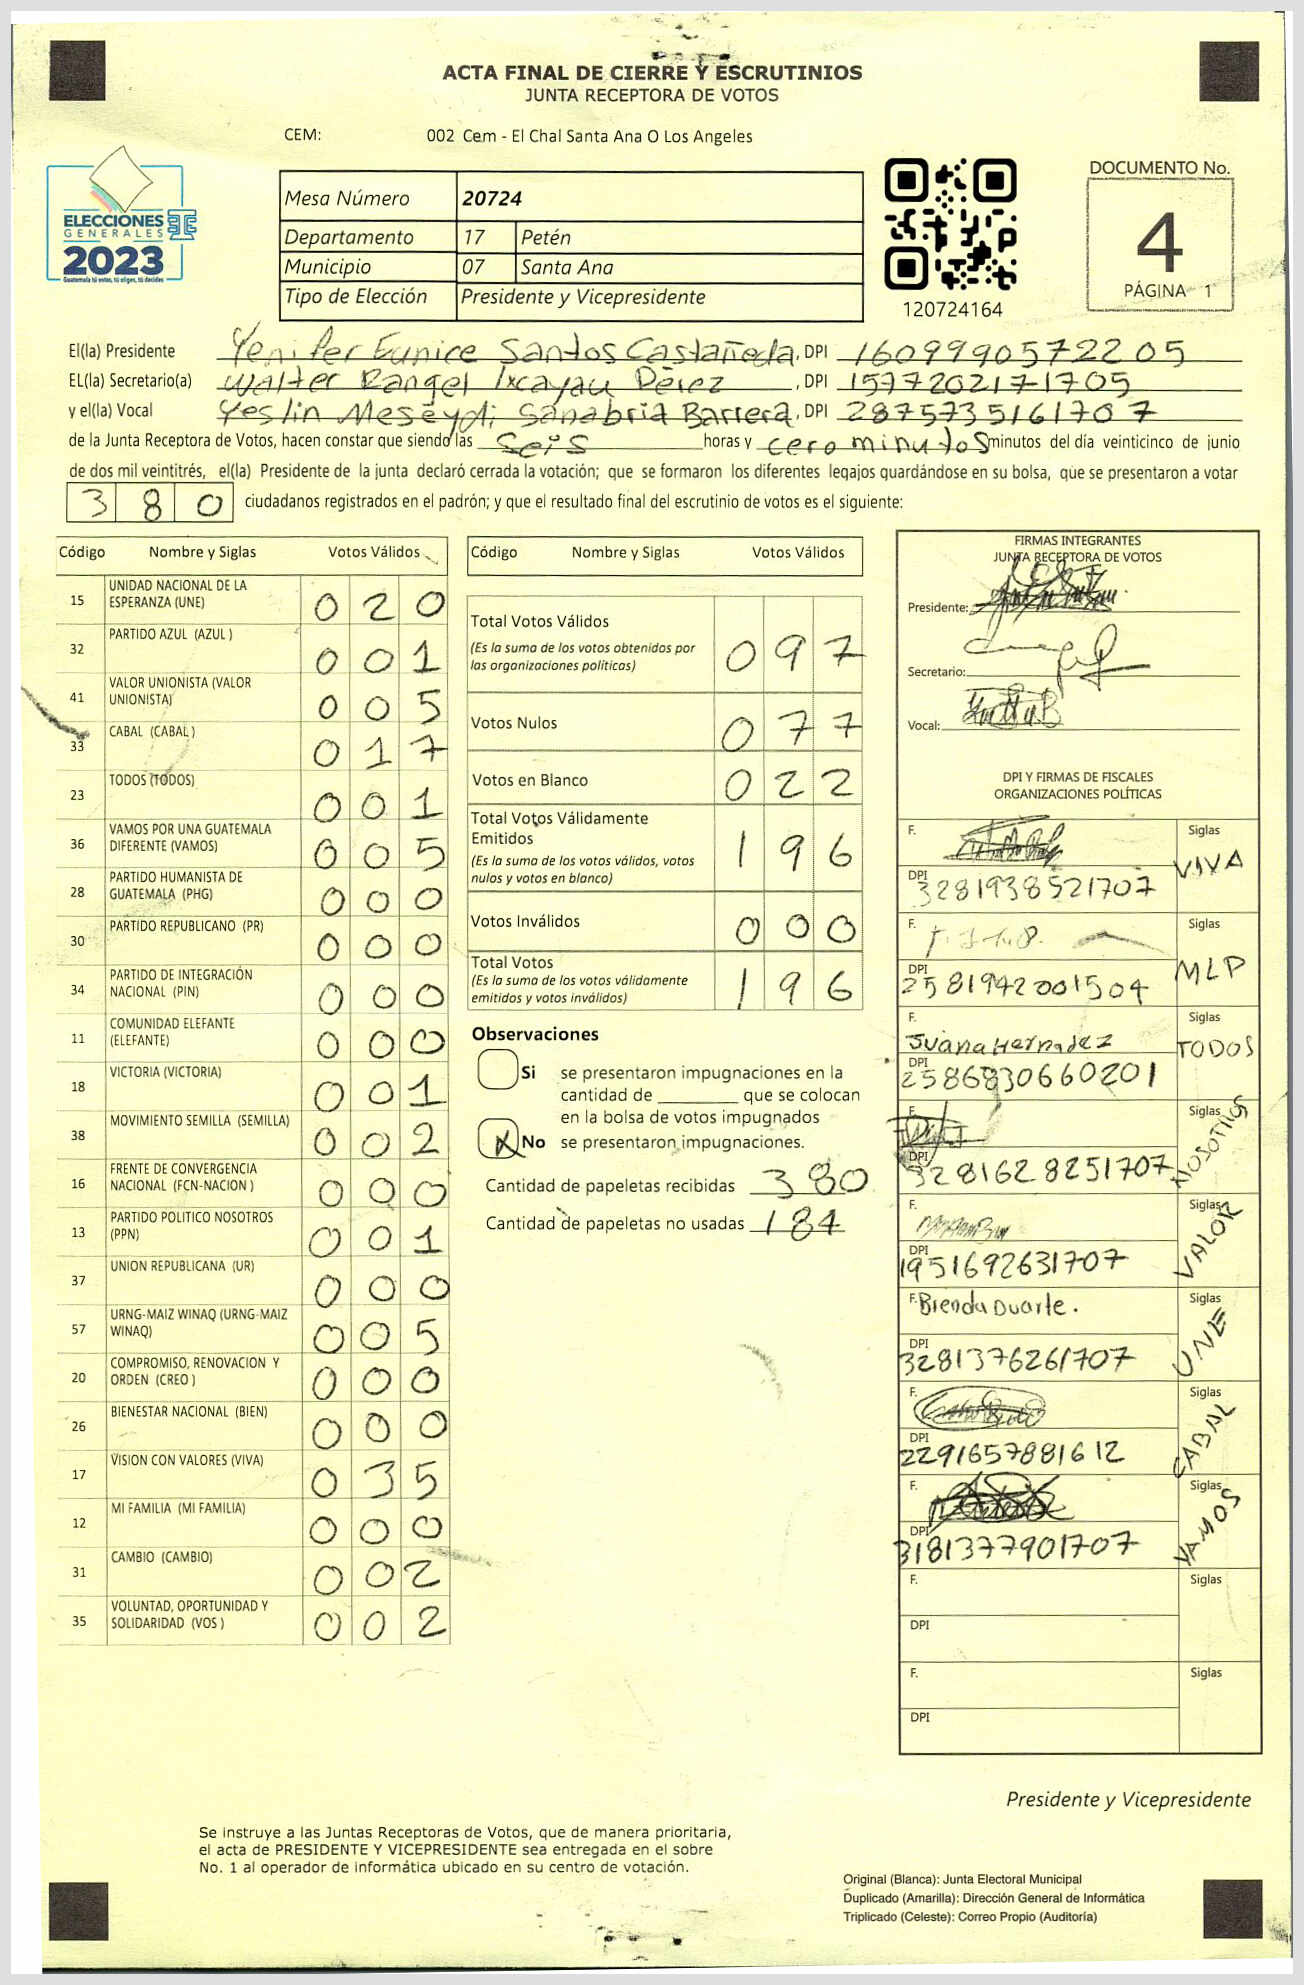 ACTA FINAL DE CIERRE Y ESCRUTINIOS
JUNTA RECEPTORA DE VOTOS
CEM: 002 Cem - El Chal Santa Ana O Los Angeles
ELECCIONES
GENERALES
2023
Guatemala tú votas, tú eliges, tú decides
Mesa Número 20724
Departamento 17 Petén
Municipio 07 Santa Ana
Tipo de Elección Presidente y Vicepresidente
120724164
DOCUMENTO No.
4
PÁGINA 1
El(la) Presidente Yenifer Eunice Santos Castañeda, DPI 1609990572205
EL(la) Secretario(a) Walter Rangel Ixcayau Pérez, DPI 1577202171705
y el(la) Vocal Yeslin Meseydi Sanabria Barrera, DPI 2875735161707
de la Junta Receptora de Votos, hacen constar que siendo las seis horas y cero minutos minutos del día veinticinco de junio
de dos mil veintitrés, el(la) Presidente de la junta declaró cerrada la votación; que se formaron los diferentes legajos guardándose en su bolsa, que se presentaron a votar
380 ciudadanos registrados en el padrón; y que el resultado final del escrutinio de votos es el siguiente:
Código Nombre y Siglas Votos Válidos
15 UNIDAD NACIONAL DE LA ESPERANZA (UNE) 020
32 PARTIDO AZUL (AZUL ) 001
41 VALOR UNIONISTA (VALOR UNIONISTA) 005
33 CABAL (CABAL ) 017
23 TODOS (TODOS) 001
36 VAMOS POR UNA GUATEMALA DIFERENTE (VAMOS) 005
28 PARTIDO HUMANISTA DE GUATEMALA (PHG) 000
30 PARTIDO REPUBLICANO (PR) 000
34 PARTIDO DE INTEGRACIÓN NACIONAL (PIN) 000
11 COMUNIDAD ELEFANTE (ELEFANTE) 000
18 VICTORIA (VICTORIA) 001
38 MOVIMIENTO SEMILLA (SEMILLA) 002
16 FRENTE DE CONVERGENCIA NACIONAL (FCN-NACION ) 000
13 PARTIDO POLITICO NOSOTROS (PPN) 001
37 UNION REPUBLICANA (UR) 000
57 URNG-MAIZ WINAQ (URNG-MAIZ WINAQ) 005
20 COMPROMISO, RENOVACION Y ORDEN (CREO ) 000
26 BIENESTAR NACIONAL (BIEN) 000
17 VISION CON VALORES (VIVA) 035
12 MI FAMILIA (MI FAMILIA) 000
31 CAMBIO (CAMBIO) 002
35 VOLUNTAD, OPORTUNIDAD Y SOLIDARIDAD (VOS ) 002
Código Nombre y Siglas Votos Válidos
Total Votos Válidos 097
(Es la suma de los votos obtenidos por
las organizaciones políticas)
Votos Nulos 077
Votos en Blanco 022
Total Votos Válidamente
Emitidos 196
(Es la suma de los votos válidos, votos
nulos y votos en blanco)
Votos Inválidos 000
Total Votos 196
(Es la suma de los votos válidamente
emitidos y votos inválidos)
Observaciones
Si se presentaron impugnaciones en la
cantidad de ________ que se colocan
en la bolsa de votos impugnados
X No se presentaron impugnaciones.
Cantidad de papeletas recibidas 380
Cantidad de papeletas no usadas 184
FIRMAS INTEGRANTES
JUNTA RECEPTORA DE VOTOS
Presidente:
Secretario:
Vocal:
DPI Y FIRMAS DE FISCALES
ORGANIZACIONES POLÍTICAS
F. Siglas VIVA
DPI 3281938521707
F. Siglas MLP
DPI 2581942001504
F. Juana Hernadez Siglas TODOS
DPI 2586830660201
F. Siglas NOSOTROS
DPI 3281628251707
F. Siglas VALOR
DPI 1951692631707
F. Brenda Duarte. Siglas UNE
DPI 3281376261707
F. Siglas CABAL
DPI 2291657881612
F. Siglas VAMOS
DPI 3181377901707
F. Siglas
DPI
F. Siglas
DPI
Presidente y Vicepresidente
Se instruye a las Juntas Receptoras de Votos, que de manera prioritaria,
el acta de PRESIDENTE Y VICEPRESIDENTE sea entregada en el sobre
No. 1 al operador de informática ubicado en su centro de votación.
Original (Blanca): Junta Electoral Municipal
Duplicado (Amarilla): Dirección General de Informática
Triplicado (Celeste): Correo Propio (Auditoría)